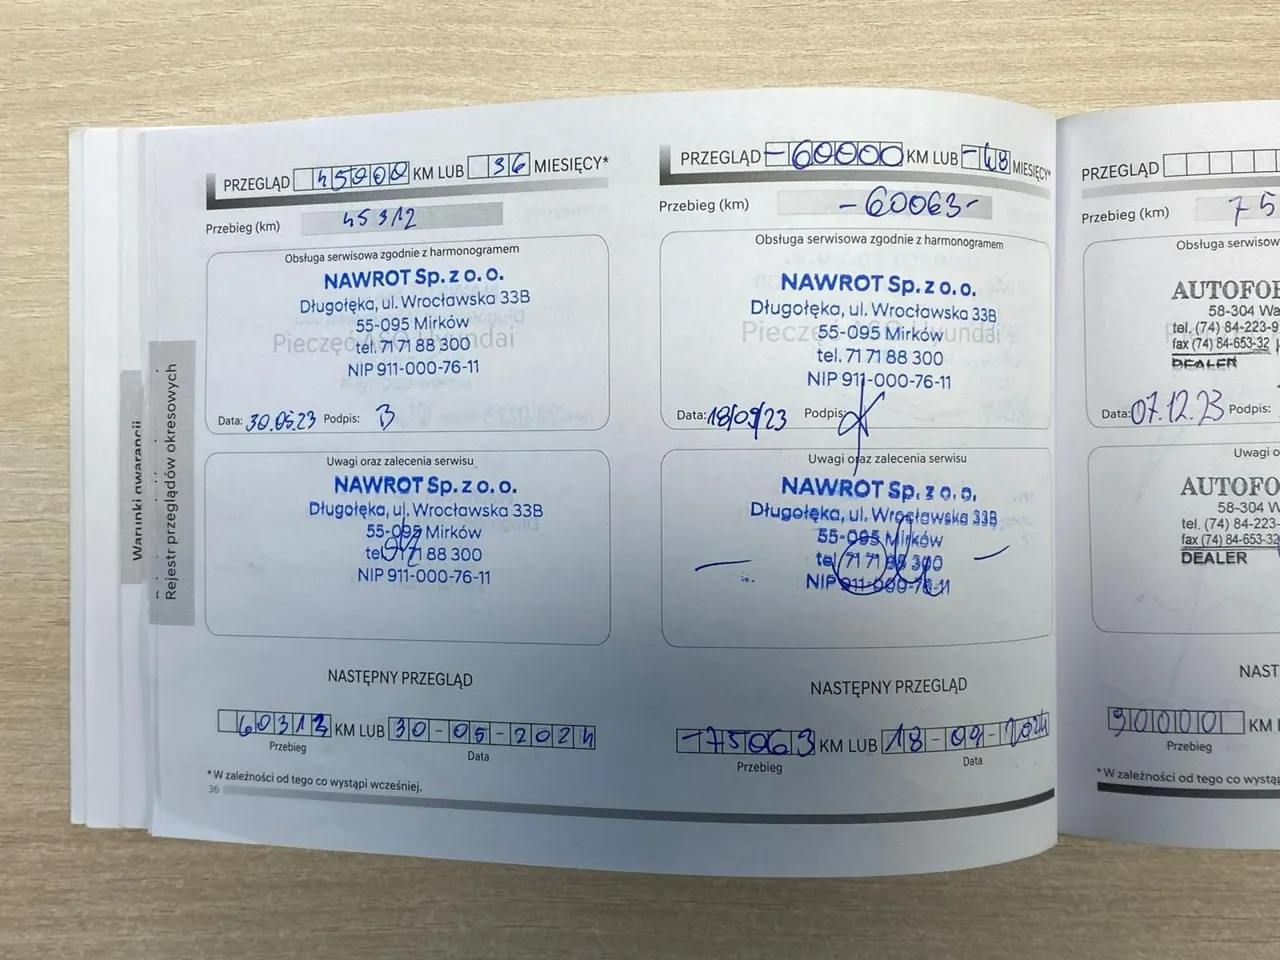 Warunki gwarancji
Rejestr przeglądów okresowych
PRZEGLĄD 45000 KM LUB 36 MIESIĘCY*
Przebieg (km) 45312
Obsługa serwisowa zgodnie z harmonogramem
Pieczęć ASO Hyundai
NAWROT Sp. z o. o.
Długołęka, ul. Wrocławska 33B
55-095 Mirków
tel. 71 71 88 300
NIP 911-000-76-11
Data: 30.05.23 Podpis:
Uwagi oraz zalecenia serwisu
NAWROT Sp. z o. o.
Długołęka, ul. Wrocławska 33B
55-095 Mirków
tel. 71 71 88 300
NIP 911-000-76-11
NASTĘPNY PRZEGLĄD
60312 KM LUB 30-05-2024
Przebieg Data
* W zależności od tego co wystąpi wcześniej.
36
PRZEGLĄD -60000 KM LUB -48 MIESIĘCY*
Przebieg (km) -60063-
Obsługa serwisowa zgodnie z harmonogramem
Pieczęć ASO Hyundai
NAWROT Sp. z o. o.
Długołęka, ul. Wrocławska 33B
55-095 Mirków
tel. 71 71 88 300
NIP 911-000-76-11
Data: 18/09/23 Podpis:
Uwagi oraz zalecenia serwisu
NAWROT Sp. z o. o.
Długołęka, ul. Wrocławska 33B
55-095 Mirków
tel. 71 71 88 300
NIP 911-000-76-11
NASTĘPNY PRZEGLĄD
-75063 KM LUB 18-09-2024
Przebieg Data
PRZEGLĄD
Przebieg (km) 75
Obsługa serwisow
AUTOFO
58-304 Wa
tel. (74) 84-223-9
fax (74) 84-653-32
DEALER
Data: 07.12.23 Podpis:
Uwagi o
AUTOFO
58-304 W
tel. (74) 84-223-
fax (74) 84-653-32
DEALER
NAST
90000 KM L
Przebieg
* W zależności od tego co wystąp